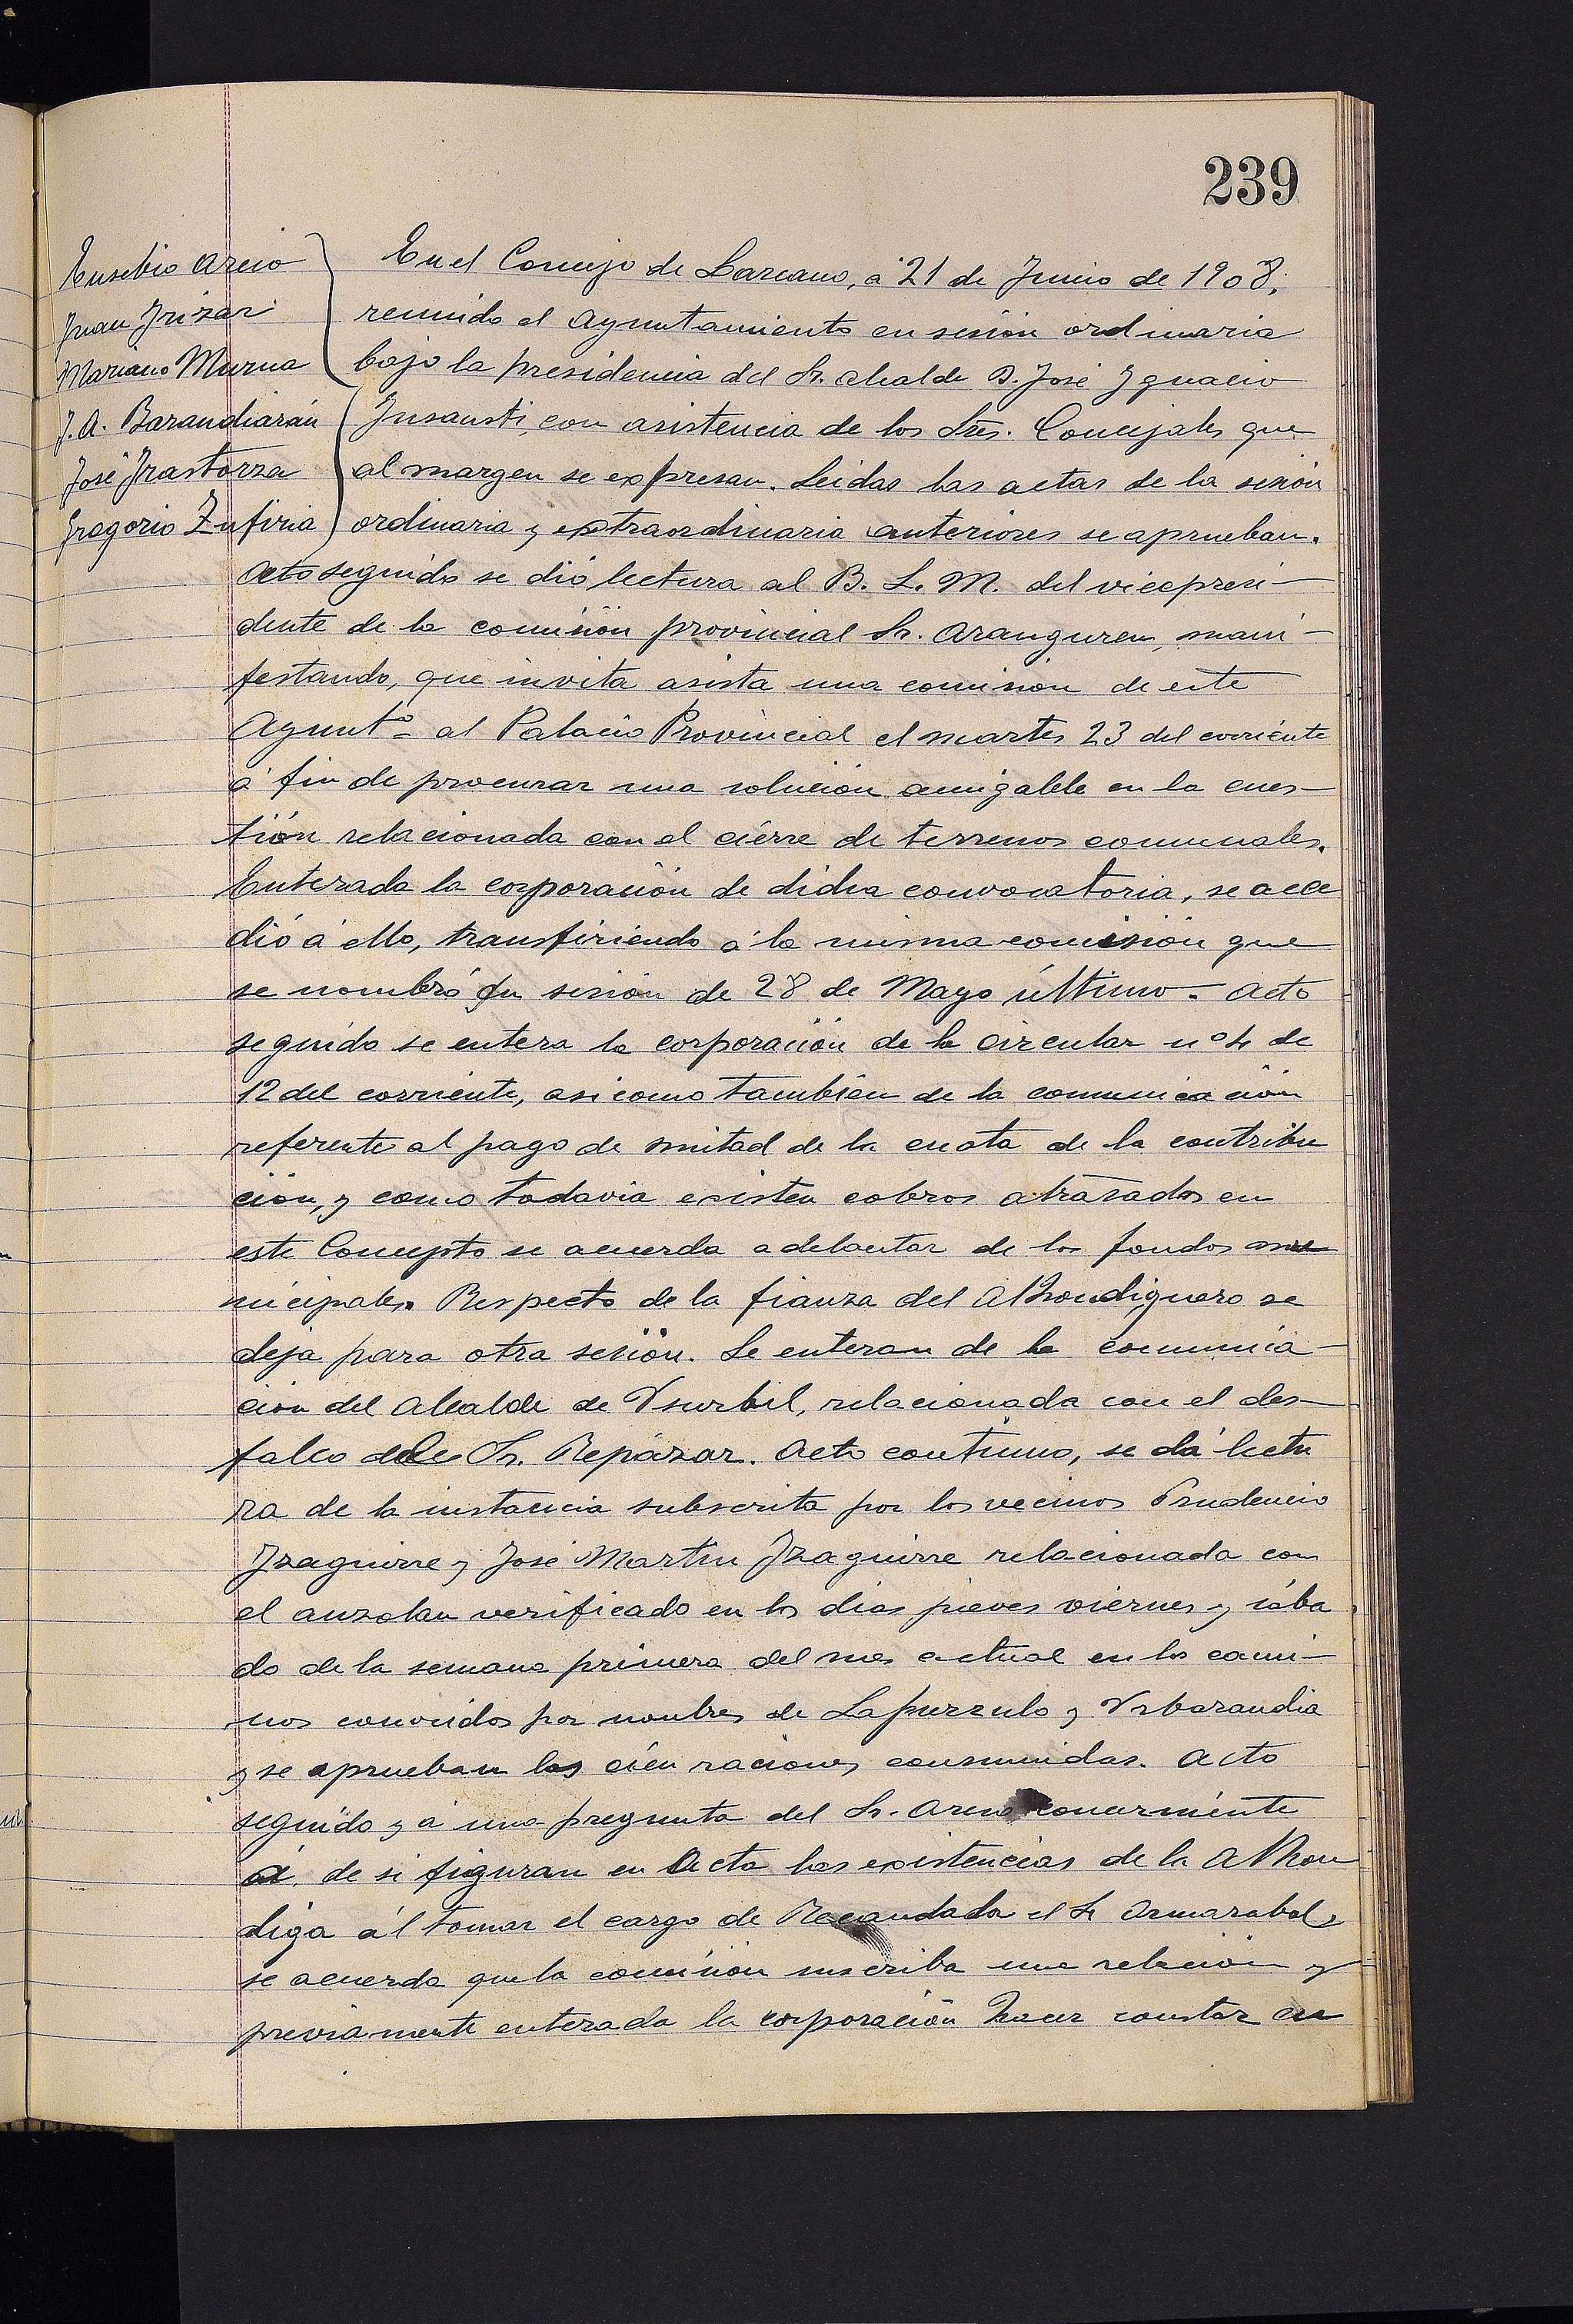 239
Eusebio Areio
Juan Irizar
Mariano Murua
J. A. Barandiarán
José Irastorza
Gregorio Zufiria
En el Concejo de Lazcano, á 21 de Junio de 1908,
reunido el Ayuntamiento en sesión ordinaria
bajo la presidencia del Sr. alcalde D. José Ygnacio
Insausti, con asistencia de los Sres. Concejales que
al margen se expresan. Leidas las actas de la sesión
ordinaria y extraordinaria anteriores se aprueban.
Acto seguido se dió lectura al B. L. M. del vicepresi-
dente de la comisión provincial Sr. Aranguren, mani-
festando, que invita asista una comisión de este
Ayuntº al Palacio Provincial el martes 23 del corriente
á fin de procurar una solución amigable en la cues-
tión relacionada con el cierre de terrenos comunales.
Enterada la corporación de dicha convocatoria, se acce
dió á ello, transfiriendo á la misma comisión que
se nombró en sesión de 28 de Mayo último. Acto
seguido se entera la corporación de la circular nº 4 de
12 del corriente, asi como también de la comunicación
referente al pago de mitad de la cuota de la contribu
ción, y como todavia existen cobros atrasados en
este Concepto se acuerda adelantar de los fondos mu
nicipales. Respecto de la fianza del Alhondiguero se
deja para otra sesión. Se enteran de la comunica-
ción del Alcalde de Usurbil, relacionada con el des-
falco del Sr. Repázar. Acto continuo, se dá lectu
ra de la instancia subscrita por los vecinos Prudencio
Izaguirre y José Martin Izaguirre relacionada con
el auzolan verificado en los dias jueves viernes y sába
do de la semana primera del mes actual en los cami-
nos conocidos por nombres de Lapurzulo y Usbarandia
y se aprueban las cién raciones consumidas. Acto
seguido y á una pregunta del Sr. Areio concerniente
á de si figuran en Acta las existencias de la Alhon
diga ál tomar el cargo de Recaudador el Sr Armarabal,
se acuerda que la comisión suscriba una relación y
previamente enterada la corporación hacer constar en